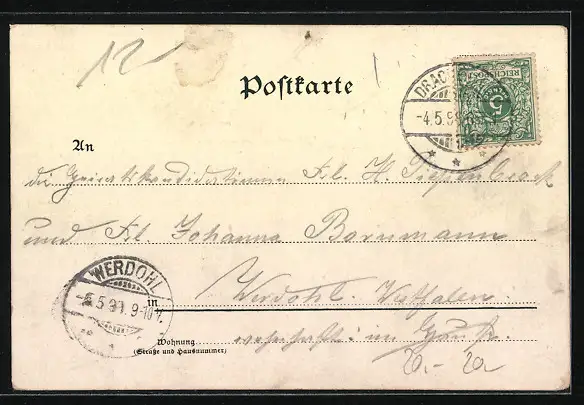 12
Postkarte
DRAC
-4.5.99
REICHSPOST
5
An
die Heiratskandidatinnen Frl. H.
und Frl. Johanna Bornmann
WERDOHL
-5.5.99 9-10V.
in
Werdohl. Westfalen.
wohnhaft: im
Wohnung
(Straße und Hausnummer)